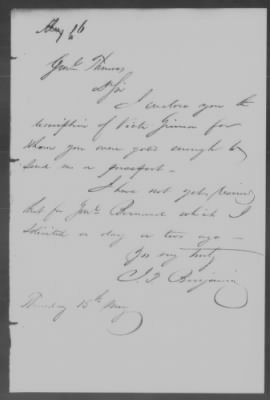 May 16
Genl Thomas
Dr Sir
I enclose you the
description of for
whom you were good enough to
send me a passport —
I have not yet received
that for Genl Barnard which I
solicited a day or two ago —
Yrs very truly
C. F. Benjamin
Thursday 15th May